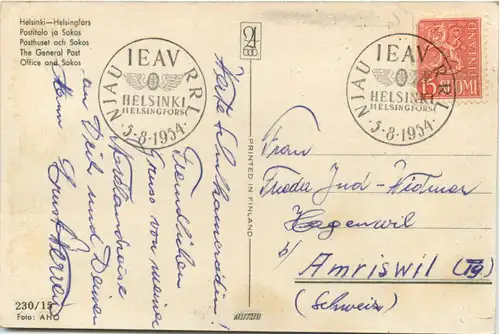 Helsinki—Helsingfors
Postitalo ja Sokos
Posthuset och Sokos
The General Post
Office and Sokos
Werte Schulkameradin!
Freundlichen
Gruss von meiner
Nordlandreise
an Dich und Deinen
Mann Ernst
230/15
Foto: AHO
PRINTED IN FINLAND
IEAV RRL NJAU
HELSINKI
HELSINGFORS
·5-8-1954·
IEAV RRL NJAU
HELSINKI
HELSINGFORS
·5-8-1954·
SUOMI FINLAND
15
Frau
Frieda Jud-Widmer
Hagenwil
b/ Amriswil (Tg)
(Schweiz)